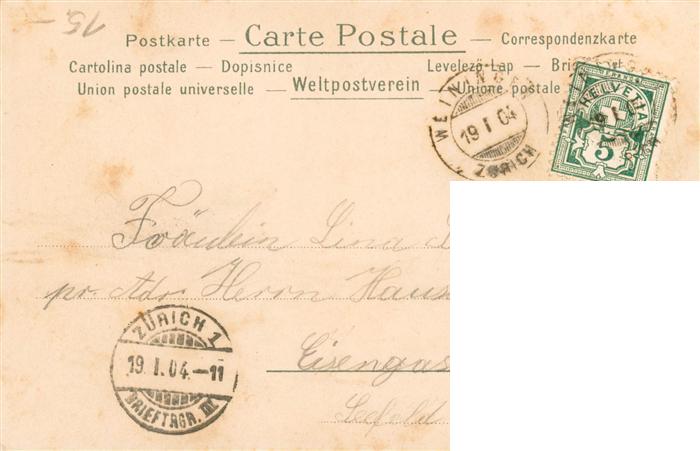 15.-
Postkarte — Carte Postale — Correspondenzkarte
Cartolina postale — Dopisnice Levelező-Lap —
Union postale universelle — Weltpostverein — Unione postale
WEININGEN
19 I 04
ZÜRICH
HELVETIA
5
Fräulein Lina
pr. Adr. Herrn Haus
Eisengas
Seefeld
ZÜRICH 1
19. I. 04.–11
BRIEFTRGR. III